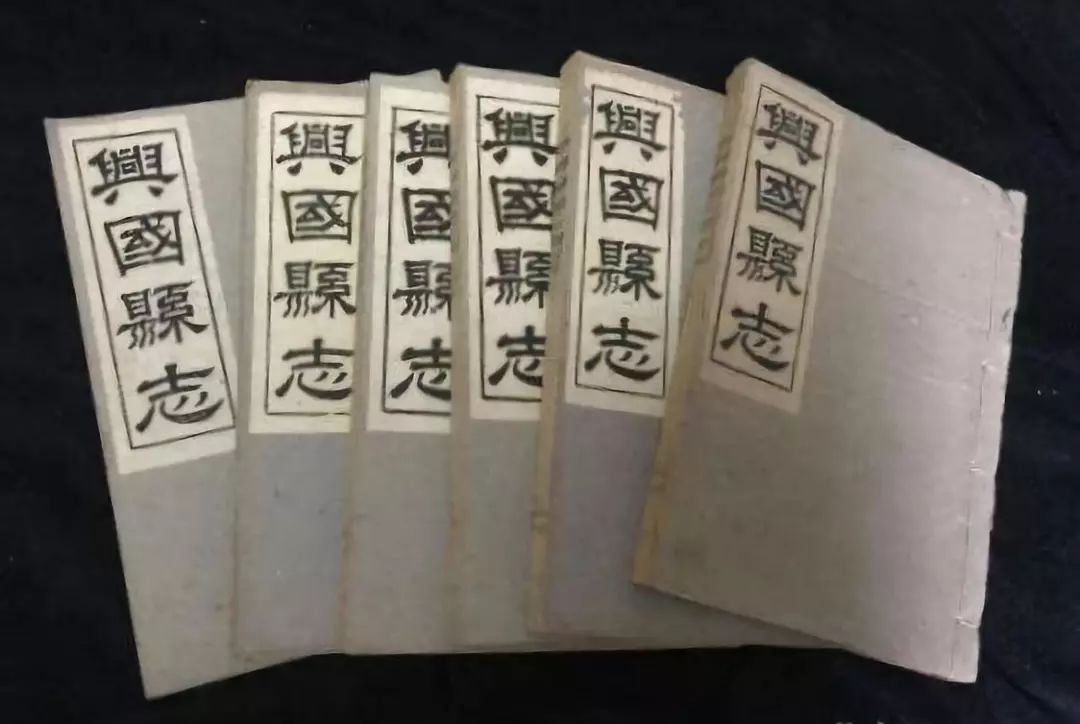 興國縣志
興國縣志
興國縣志
興國縣志
興國縣志
興國縣志